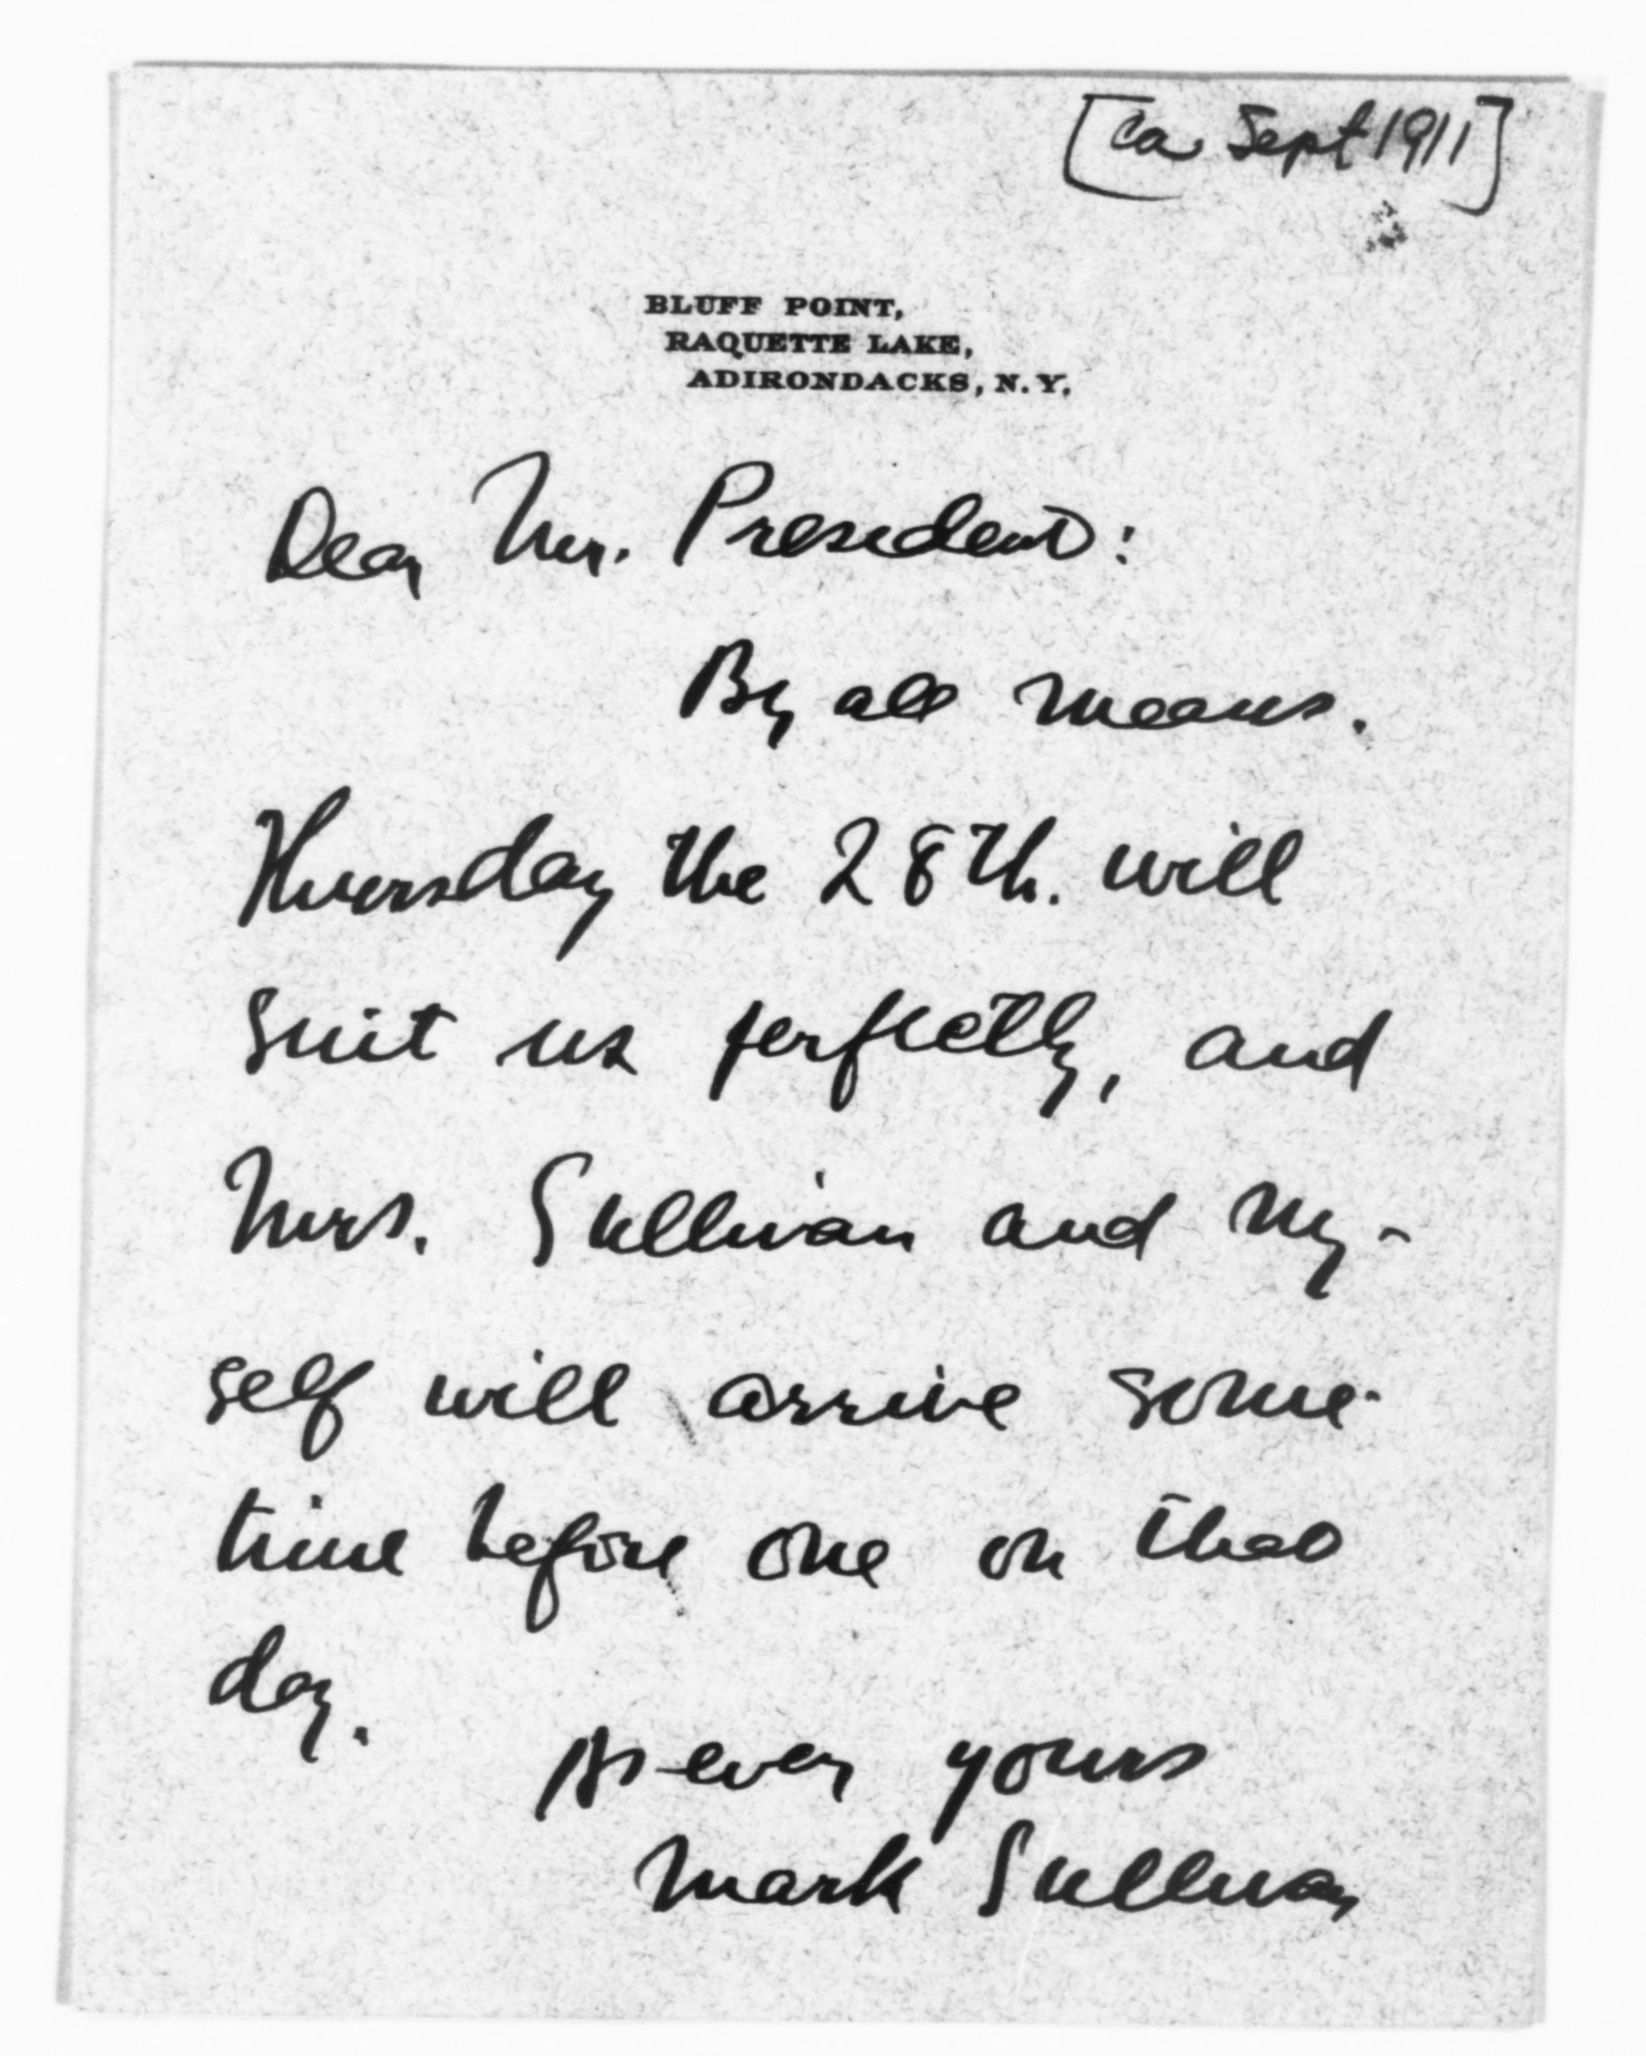 [ca Sept 1911]
BLUFF POINT,
RAQUETTE LAKE,
ADIRONDACKS, N.Y.
Dear Mr. President:
By all means.
Thursday the 28th. will
suit us perfectly, and
Mrs. Sullivan and my-
self will arrive some-
time before one on that
day.
As ever yours
Mark Sullivan